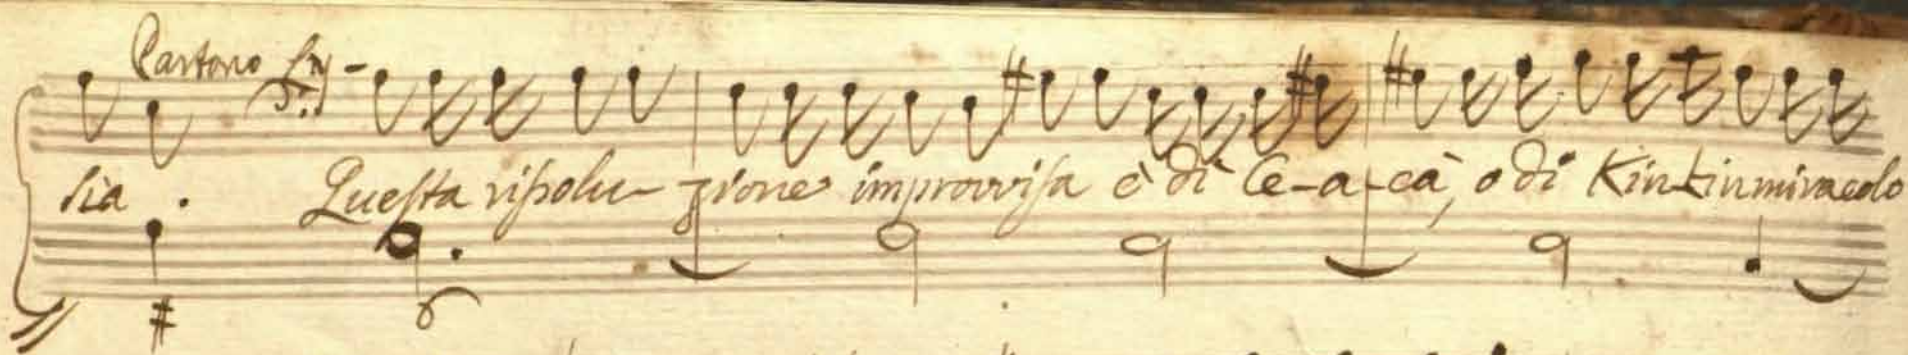 Partono
sia. Questa risolu-zione improvvisa è di Ce-a-cà, o di Kinkin miracolo